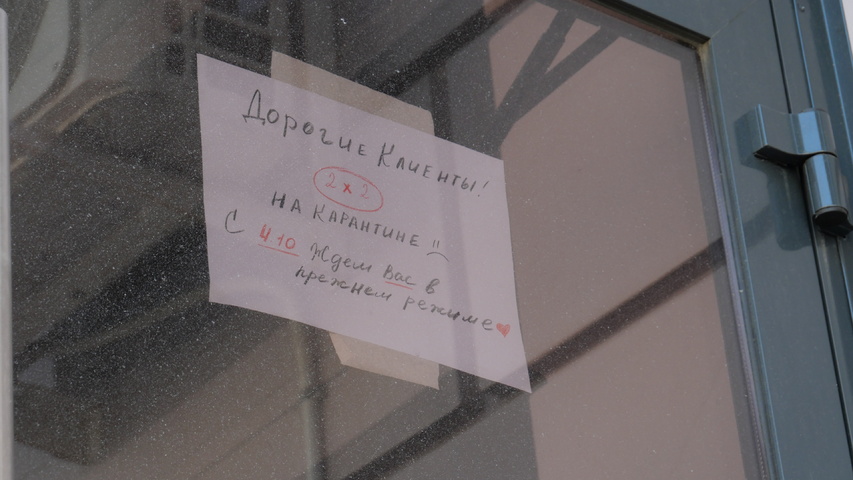 Дорогие Клиенты!
2 x 2
НА КАРАНТИНЕ
С 4.10 Ждем Вас в
прежнем режиме